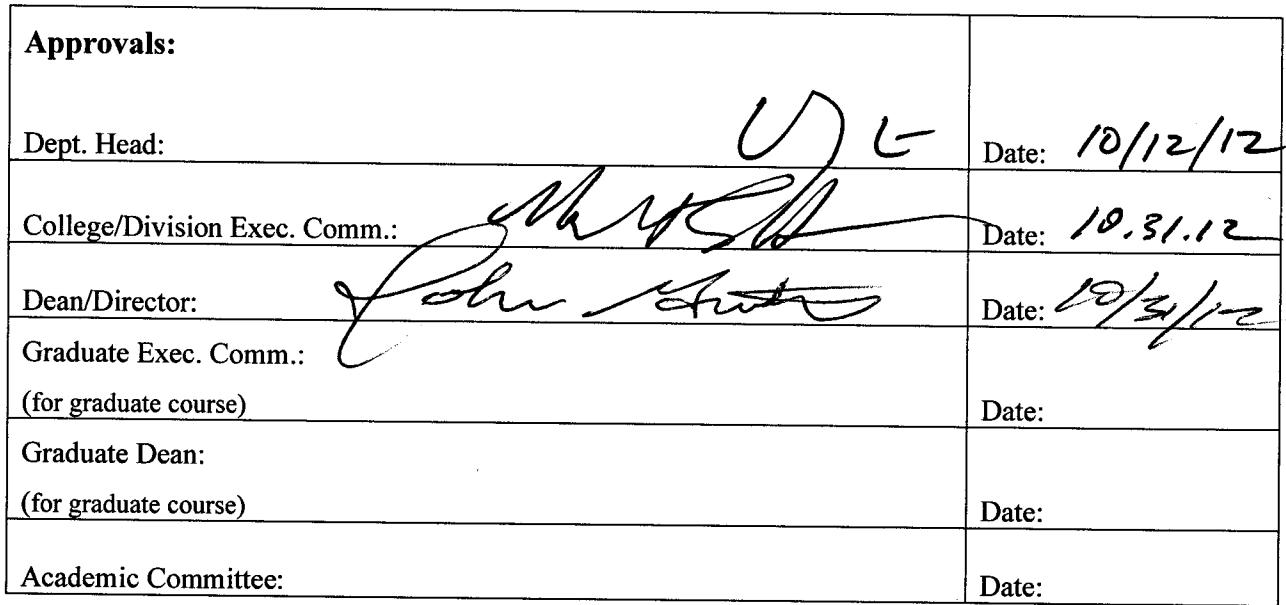 Approvals:
Dept. Head: Date: 10/12/12
College/Division Exec. Comm.: Date: 10.31.12
Dean/Director: John Date: 10/31/12
Graduate Exec. Comm.:
(for graduate course) Date:
Graduate Dean:
(for graduate course) Date:
Academic Committee: Date: